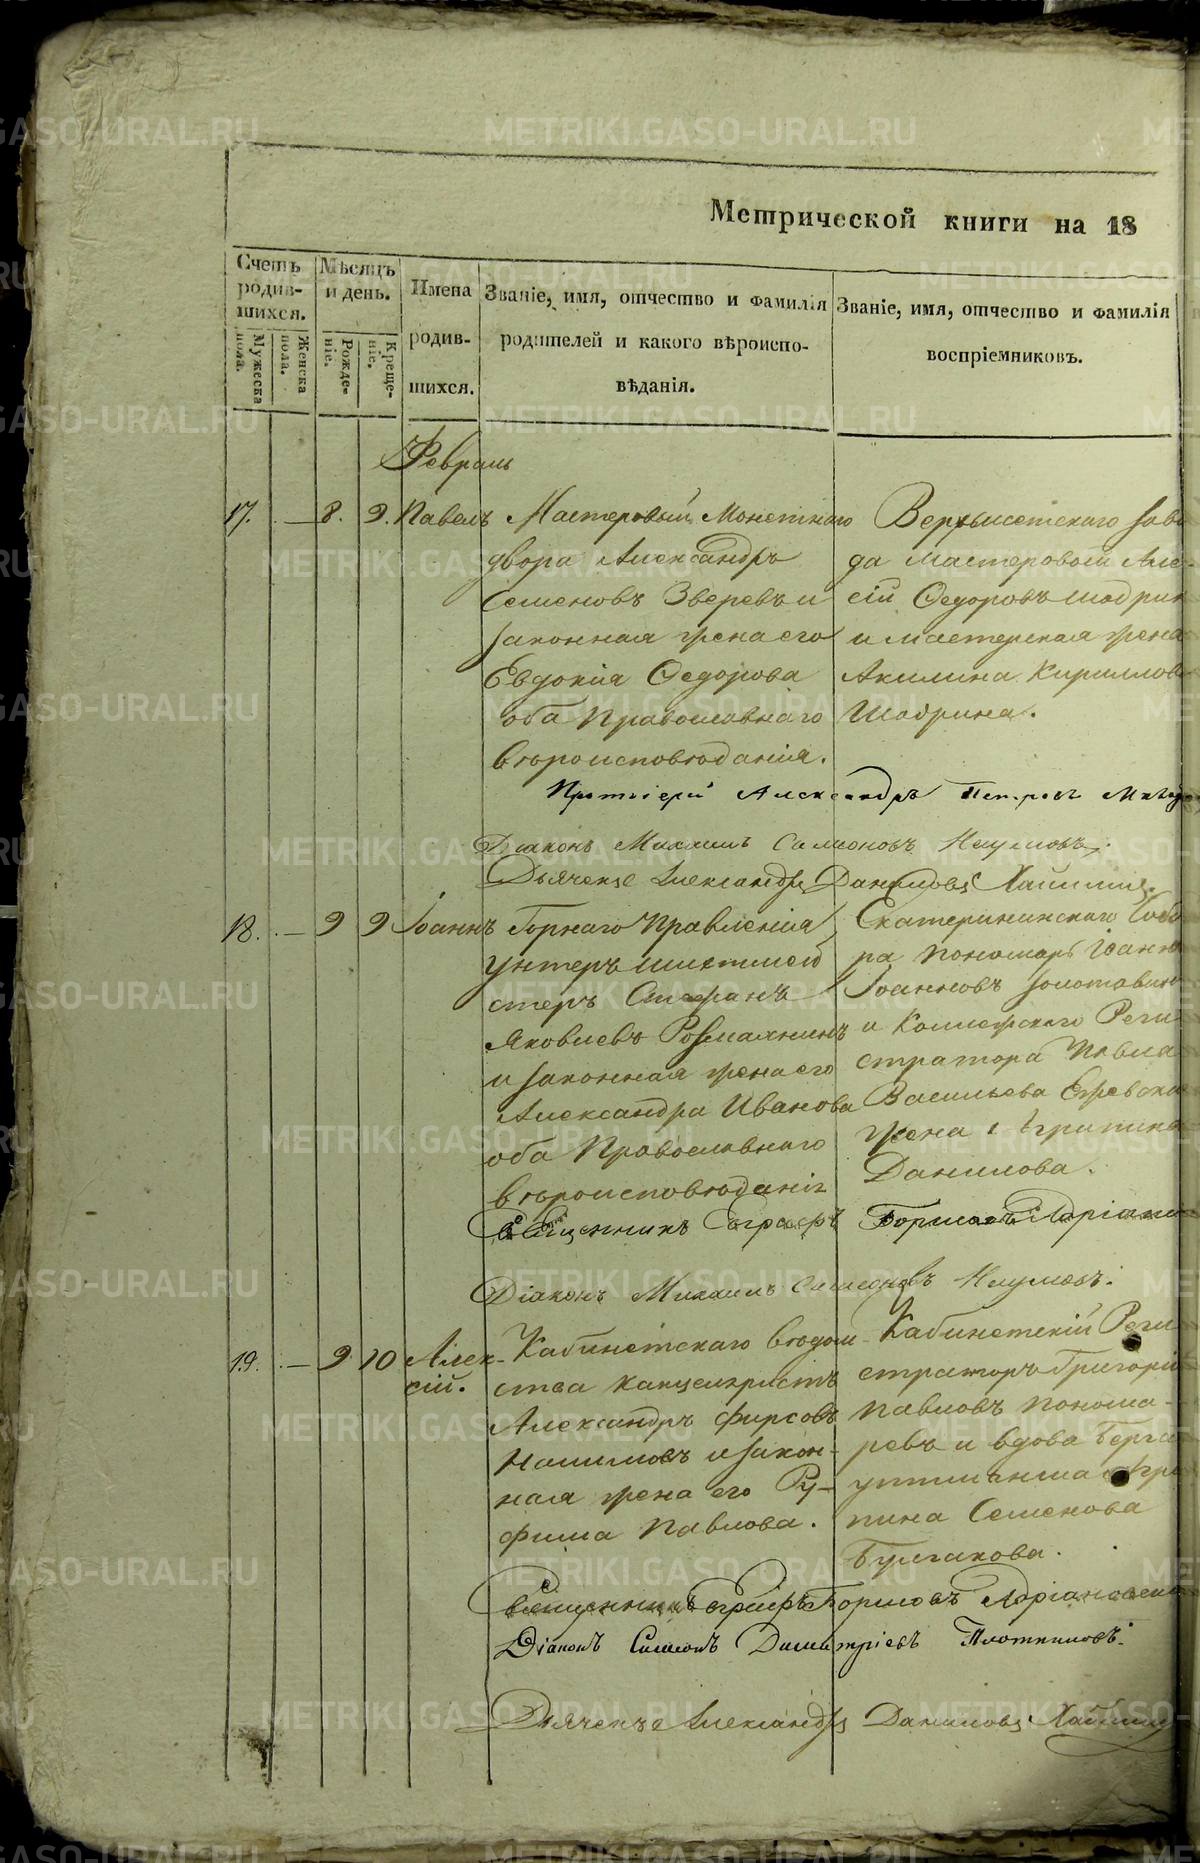 Метрической книги на 18
Счетъ родив-шихся.
Мужеска пола.
Женска пола.
Мѣсяцъ и день.
Рожде-ніе.
Креще-ніе.
Имена родив-шихся.
Званіе, имя, отчество и фамилія родителей и какого вѣроиспо-вѣданія.
Званіе, имя, отчество и фамилія воспріемниковъ.
Февраль
17. — 8. 9. Павелъ
Мастеровый Монетнаго
двора Александръ
Семеновъ Зверевъ и
законная жена его
Евдокія Федорова
оба Православнаго
вѣроисповѣданія.
Верхъисетскаго заво
да мастеровой Але-
сій Федоровъ Шадрин
и мастерская жена
Акилина Кириллов
Шадрина.
Протоіерей Александръ Петровъ
Діаконъ Михаилъ Симеоновъ Наумовъ.
Дьячекъ Александръ Даниловъ
18. — 9 9 Іоаннъ
Горнаго Правленія
унтеръ шихтмей
стеръ Стефанъ
Яковлевъ
и законная жена его
Александра Иванова
оба Православнаго
вѣроисповѣданія
Екатерининскаго Собо
ра пономарь Іоаннъ
Іоанновъ Золотавин
и Коллежскаго Реги
стратора Павла
Васильева
жена Агрипина
Данилова.
Священникъ Евграфъ Борисовъ
Діаконъ Михаилъ Симеоновъ Наумовъ.
19. — 9 10 Алек-
сій.
Кабинетскаго вѣдом-
ства канцеляристъ
Александръ Фирсовъ
и закон-
ная жена его Ру-
фима Павлова.
Кабинетскій Реги
страторъ Григорій
Павловъ Понома-
ревъ и вдова Берга
уптманша Агри
пина Семенова
Булгакова.
Священникъ Евграфъ Борисовъ
Діаконъ Симеонъ Димитріевъ Плотниковъ.
Дьячекъ Александръ Даниловъ
METRIKI.GASO-URAL.RU